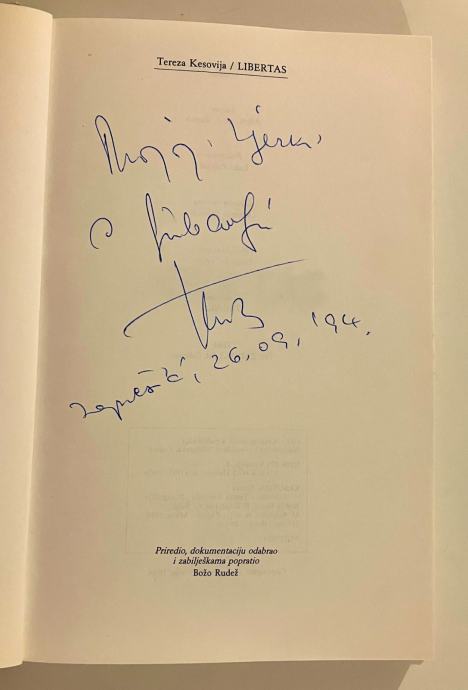 Tereza Kesovija / LIBERTAS
Mojoj Vjeri,
s ljubavlju
26.09.'94.
Priredio, dokumentaciju odabrao
i zabilješkama popratio
Božo Rudež